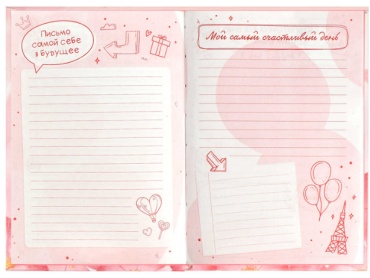 Письмо
самой себе
в будущее
Мой самый счастливый день